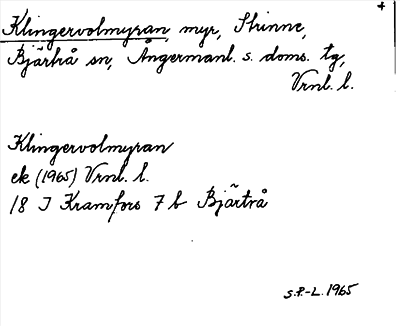 +
Klingervolmyran, myr, Strinne,
Bjärtrå sn, Ångermanl. s. doms. tg,
Vrnl. l.
Klingervolmyran
ek (1965) Vrnl. l.
18 J Kramfors 7 b Bjärtrå
S.P.-L. 1965